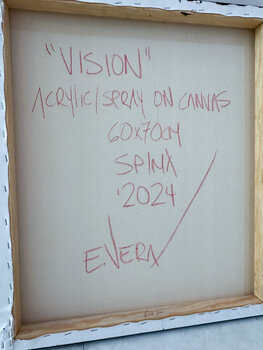 "VISION"
ACRYLIC/SPRAY ON CANVAS
60x70CM
SPINX
2024
E.VERA